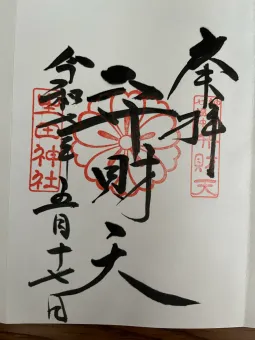 奉拝
弁財天
令和六年五月十七日
神社
財天